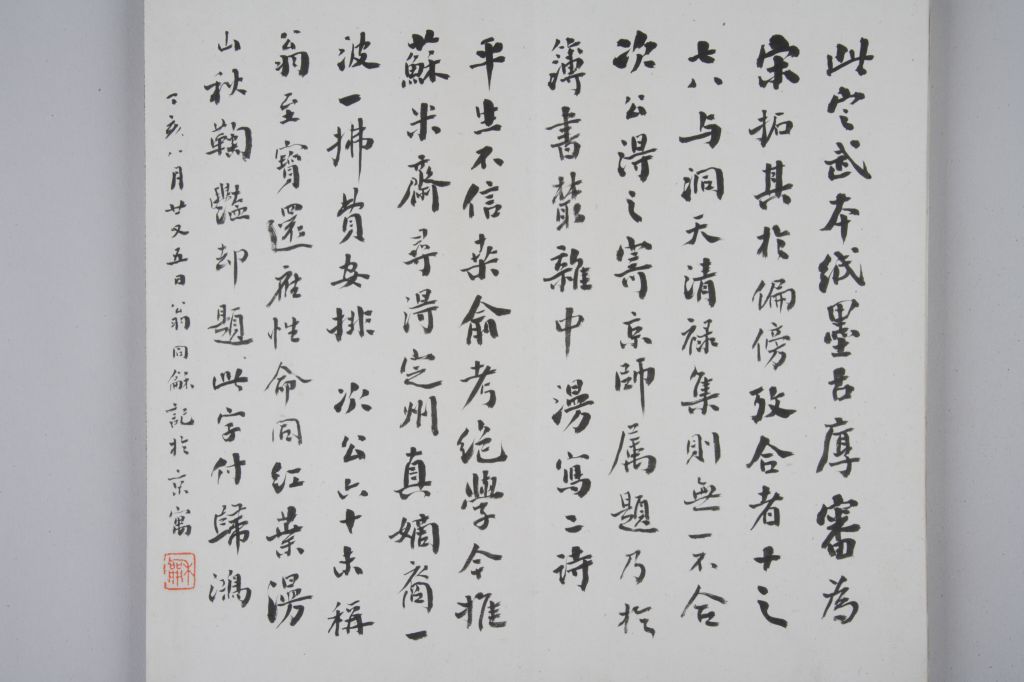 此定武本紙墨古厚審為
宋拓其於偏傍攷合者十之
七八与洞天清禄集則無一不合
次公淂之寄京師属題乃於
簿書叢雜中漫寫二詩
平生不信桒俞考絶學今推
蘇米齋尋淂定州真嫡裔一
波一拂費安排 次公六十未稱
翁至寶還應性命同紅葉漫
山秋鞠豔却題此字付歸鴻
丁亥八月廿又五日翁同龢記於京寓